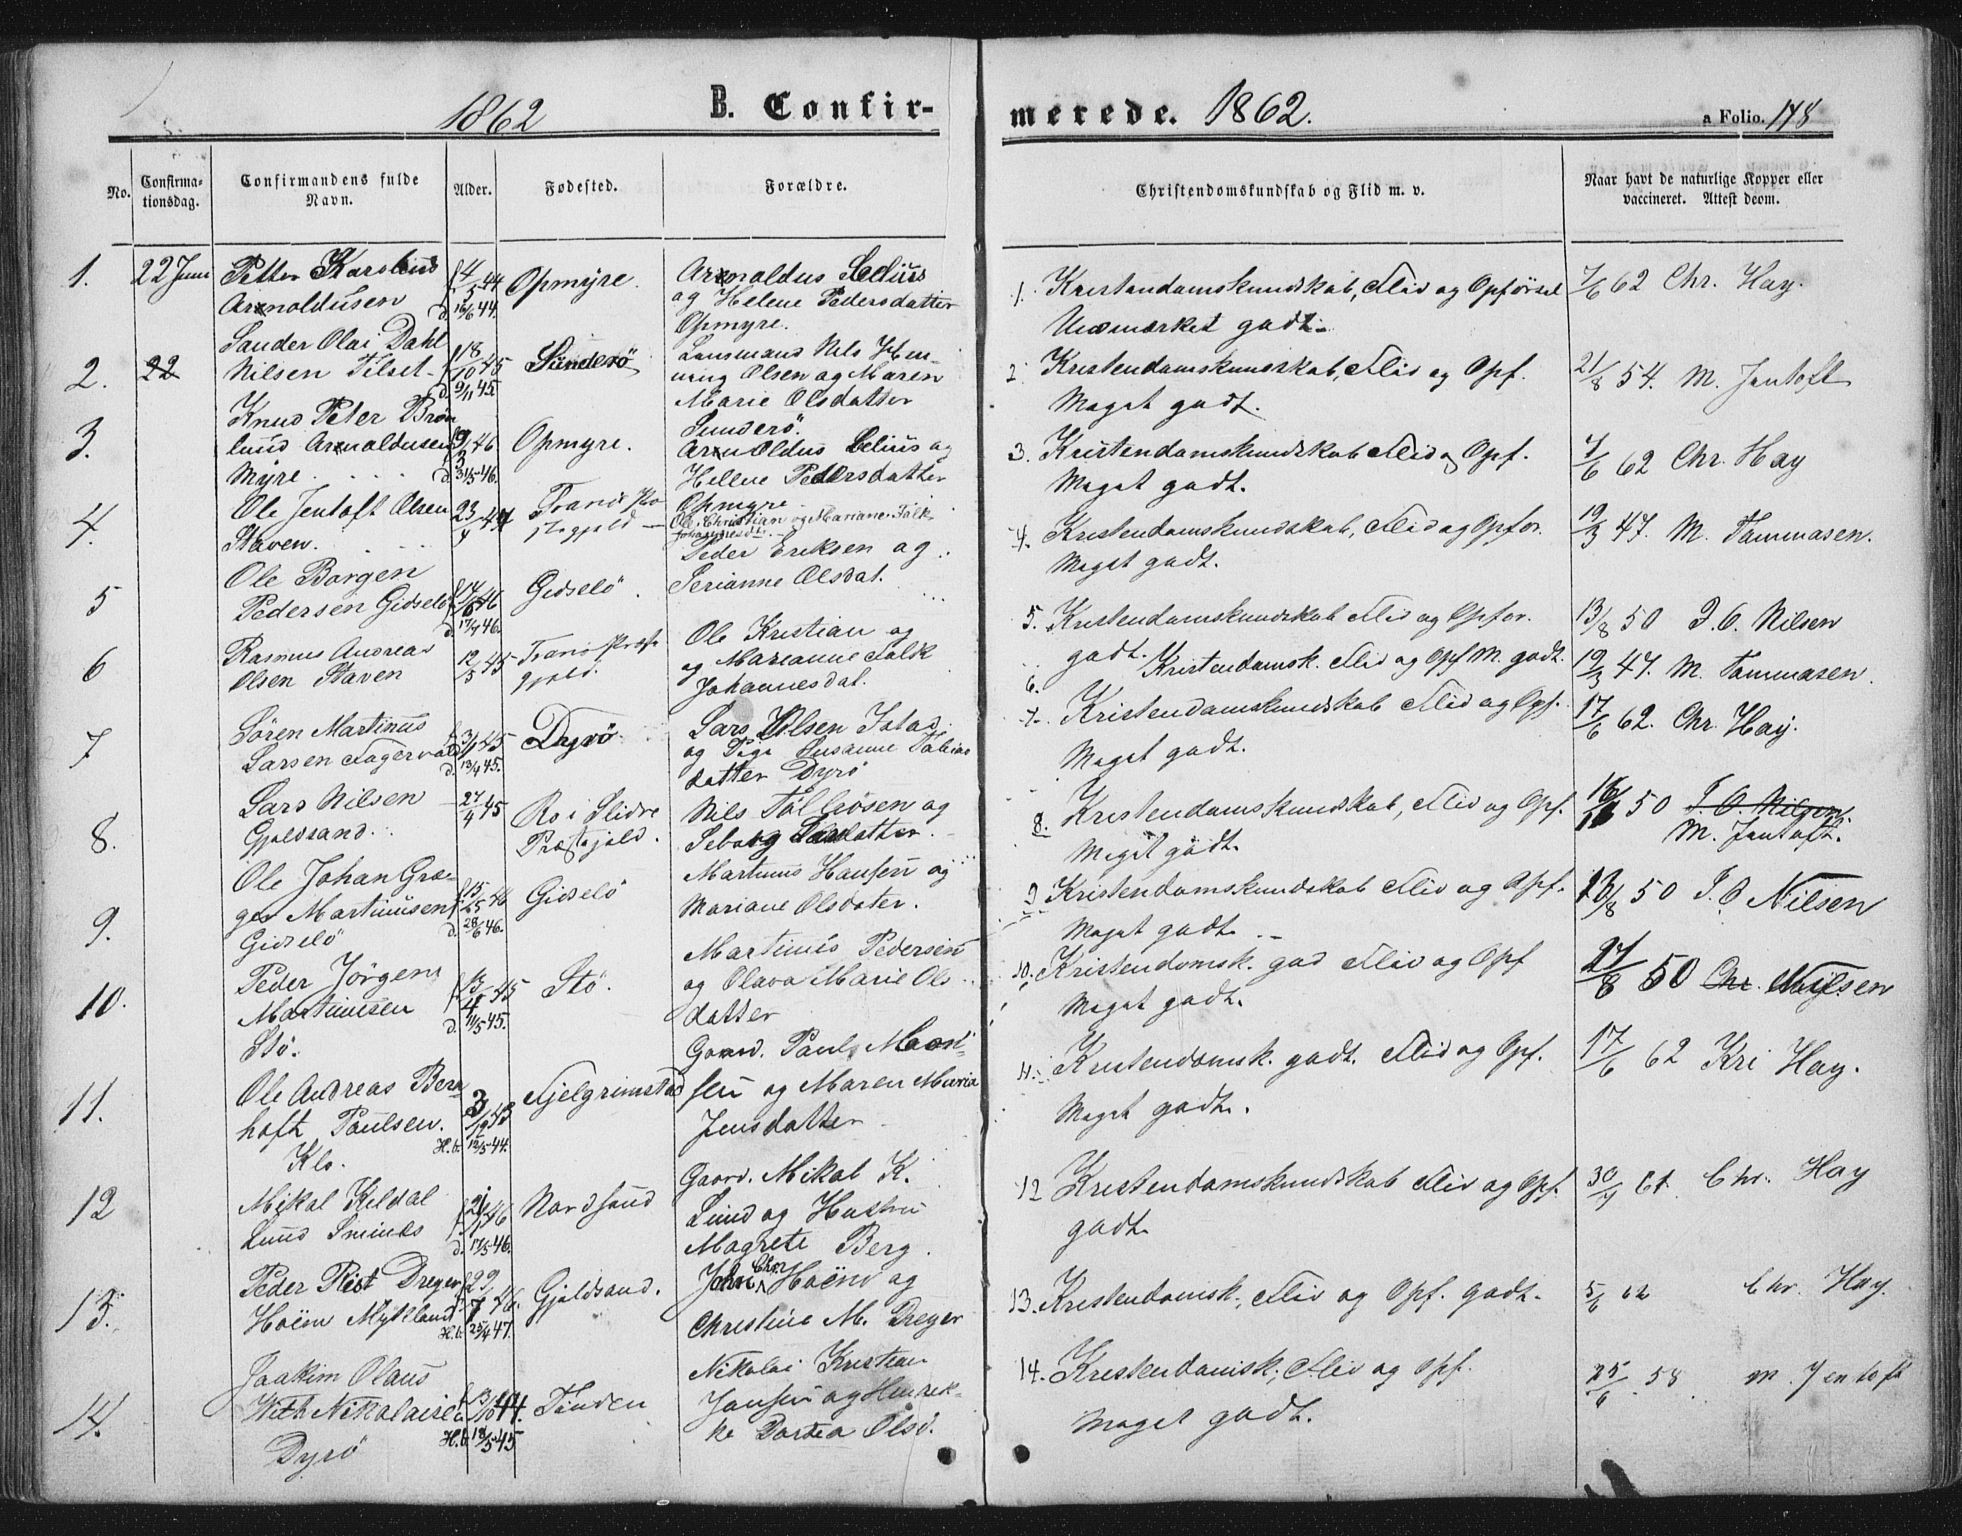 1862 B. Confir-
merede. 1862.
a Folio. 148
No.
Confirma-
tionsdag.
Confirmandens fulde
Navn.
Alder.
Fødested.
Forældre.
Christendomskundskab og Flid m. v.
Naar havt de naturlige Kopper eller
vaccineret. Attest deom.
1. 22 Juni
Petter Karolius
Arnoldusen
f 4/5 44
d. 16/6 44.
Opmyre.
Arnoldus Selius
og Helene Pedersdatter
Opmyre.
1. Kristendamskundskab, Flid og Opførsel
Udmærket godt.
7/6 62 Chr. Hay.
2. 22
Sander Olai Dahl
Nilsen Tilset
f 18/10 45
d. 9/11 45.
Sünderö
Lensmans Nils Hen-
ning Olsen og Maren
Marie Olsdatter
Sunderö.
2. Kristendamskundskab, Flid og Opf.
Meget godt.
21/8 54. M. Jentoft
3.
Knud Peter Brön
lund Arnoldusen
Myre
9/3 46
d. 31/5 46.
Opmyre.
Arnoldus Selius og
Hellene Pedersdatter
Opmyre
3. Kristendamskundskab Flid og Opf.
Meget godt.
7/6 62 Chr. Hay
4.
Ole Jentoft Olsen
Staven.
Ole Christian og Mariane Falk
4. Kristendamskundskab, Flid og Opfor.
Meget godt.
19/3 47. M. Tammasen.
5
Ole Borgen
Pedersen Gidselö
d. 17/9 46.
Gidselö
Peder Eriksen og
Serianne Olsdat.
5. Kristendamskundskab Flid og Opfor.
godt.
13/8 50 J. O. Nilsen
6
Rasmus Andreas
Olsen Staven
12/5 45
Ole Kristian og
og Marianne Falk
Johannesdat.
6. Kristendamsk. Flid og Opf M. godt.
19/3 47. M. Tammasen
7
Sören Martinus
Larsen Fagervold
d. 13/4 45.
Dyrö
Lars Olsen
og Pige Susanne Tobias
datter Dyrö
7. Kristendamskundskab Flid og Opf.
Meget godt.
17/6 62. Chr. Hay.
8.
Lars Nilsen
Gjeldsand.
27/4 45
Ro i Slidre
Præstegjeld.
Nils Tolleösen og
Seborg Larsdatter.
8. Kristendamskundskab, Flid og Opf.
Meget godt.
50 J. O. Nilsen.
M. Jentoft.
9.
Ole Johan Græ-
ger Martinusen
Gidselö
d. 28/6 46.
Gidselö
Martinus Hansen og
Mariane Olsdater.
9 Kristendamskundskab Flid og Opf.
Meget godt.
13/8 50 J. O Nilsen
10.
Peder Jörgen
Martinusen
Stö.
d. 11/5 45.
Stö.
Martinus Pedersen
og Olava Marie Ols
datter
10. Kristendomsk. god Flid og Opf
Meget godt.
27/8 50 Chr. Nilsen
11.
Ole Andreas Bern
hoft Paulsen.
Klo.
H.b. 12/5 44.
Fjelgrimstad
Gaard. Paul Mon-
sen og Maren Maria
Jensdatter
11. Kristendomsk. godt. Flid og Opf.
Meget godt.
17/6 62 Kri Hay.
12
Mikal Kildal
Lund Smines
d. 17/5 46.
Nordsand
Gaard. Mikal K.
Lund og Hustru
Magrete Berg.
12 Kristendamskundskab Flid og Opf.
godt.
30/7 61. Chr. Hay
13.
Peder Rist Dreyer
Hoëm Myhlland
H.b. 25/4 47.
Gjeldsand.
John Chr. Hoëm og
Christine M. Dreyer
13. Kristendomsk., Flid og Opf. godt.
5/6 62 Chr. Hay.
14.
Joakim Olaus
With Nikolaisen
Dyrö
f. 13/10 44.
H.b. 18/5 45
Tinden
Nikolai Kristian
Jansen og Henrek-
ke Dortea Olsd.
14. Kristendamsk., Flid og Opf.
Meget godt.
25/6 58 M. Jentoft